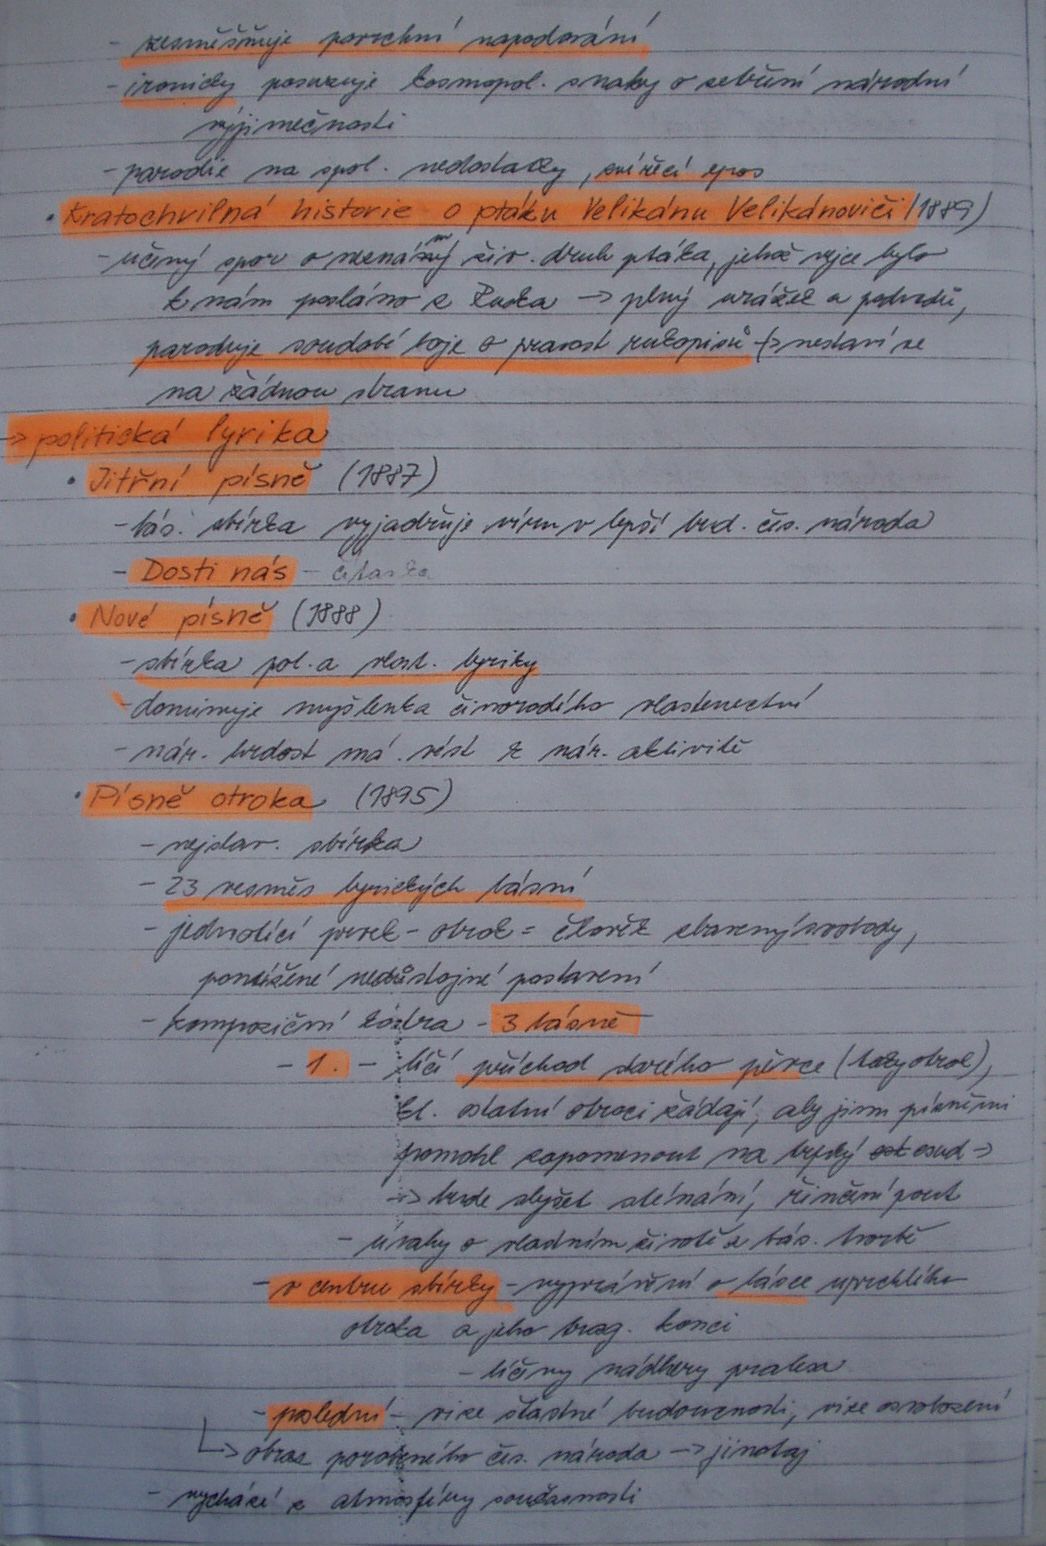 - zesměšňuje povrchní napodování
- ironicky posuzuje kosmopol. snahy o setření národní
výjimečnosti
- parodie na spol. nedostatky, zvířecí epos
• Kratochvilná historie o ptáku Velikánu Velikánoviči (1889)
- učený spor o neznámý živ. druh ptáka, jehož vejce bylo
k nám posláno z Ruska -> plný urážek a podvodů,
paroduje soudobé boje o pravost rukopisů -> nestaví se
na žádnou stranu
-> politická lyrika
• Jitřní písně (1887)
- bás. sbírka vyjadřuje víru v lepší bud. čes. národa
- Dosti nás - čítanka
• Nové písně (1888)
- sbírka pol. a vlast. lyriky
- dominuje myšlenka činorodého vlastenectví
- nár. hrdost má vést k nár. aktivitě
• Písně otroka (1895)
- nejslav. sbírka
- 23 vesměs lyrických básní
- jednotící prvek - otrok = člověk zbavený svobody,
ponížené nedůstojné postavení
- kompoziční kostra - 3 básně
- 1. - líčí příchod starého pěvce (taky otrok),
kt. ostatní otroci žádají, aby jim písněmi
pomohl zapomenout na trpký osud ->
-> bude slyšet sténání, řinčení pout
- úvahy o vlastním životě a bás. tvorbě
- v centru sbírky - vyprávění o lásce uprchlého
otroka a jeho trag. konci
- líčeny nádhery pralesa
- poslední - vize šťastné budoucnosti, vize osvobození
-> obraz porobeného čes. národa -> jinotaj
- vychází z atmosféry současnosti